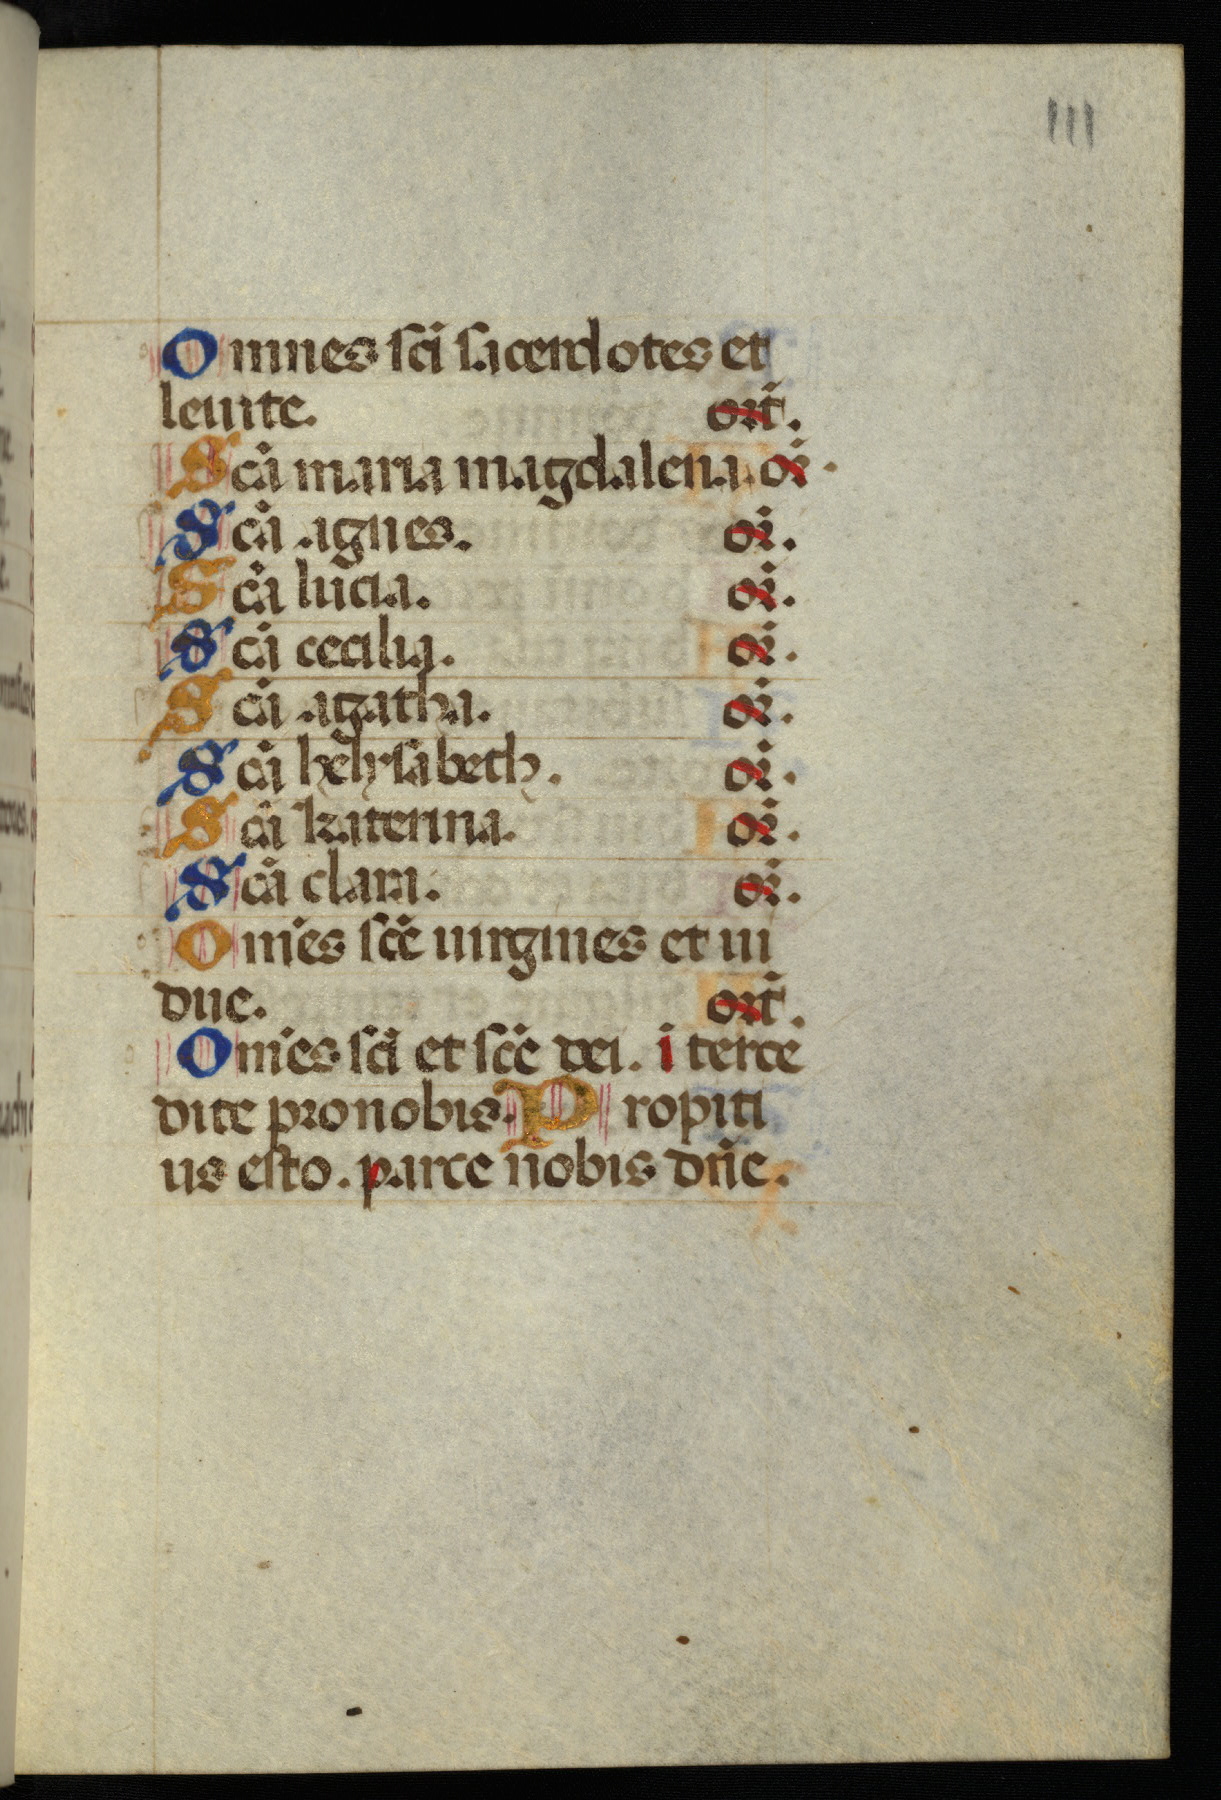 111
Omnes sc̃i sacerdotes et
leuite. ort̃.
Scã maria magdalena. or̃.
Scã agnes. or̃.
Scã lucia. or̃.
Scã cecilia. or̃.
Scã agatha. or̃.
Scã helysabeth. or̃.
Scã katerina. or̃.
Scã clara. or̃.
Om̃es sc̃e uirgines et ui
due. ort̃.
Om̃es sc̃i et sc̃e dei. i terce
dite pro nobis. Propiti
us esto. parce nobis dñe.